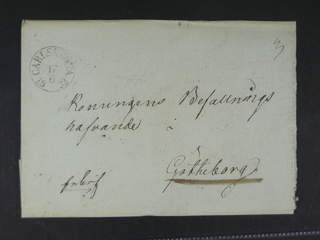 CARLSTAD
17
3
Konungens Befallnings
hafvande
i
Götheborg